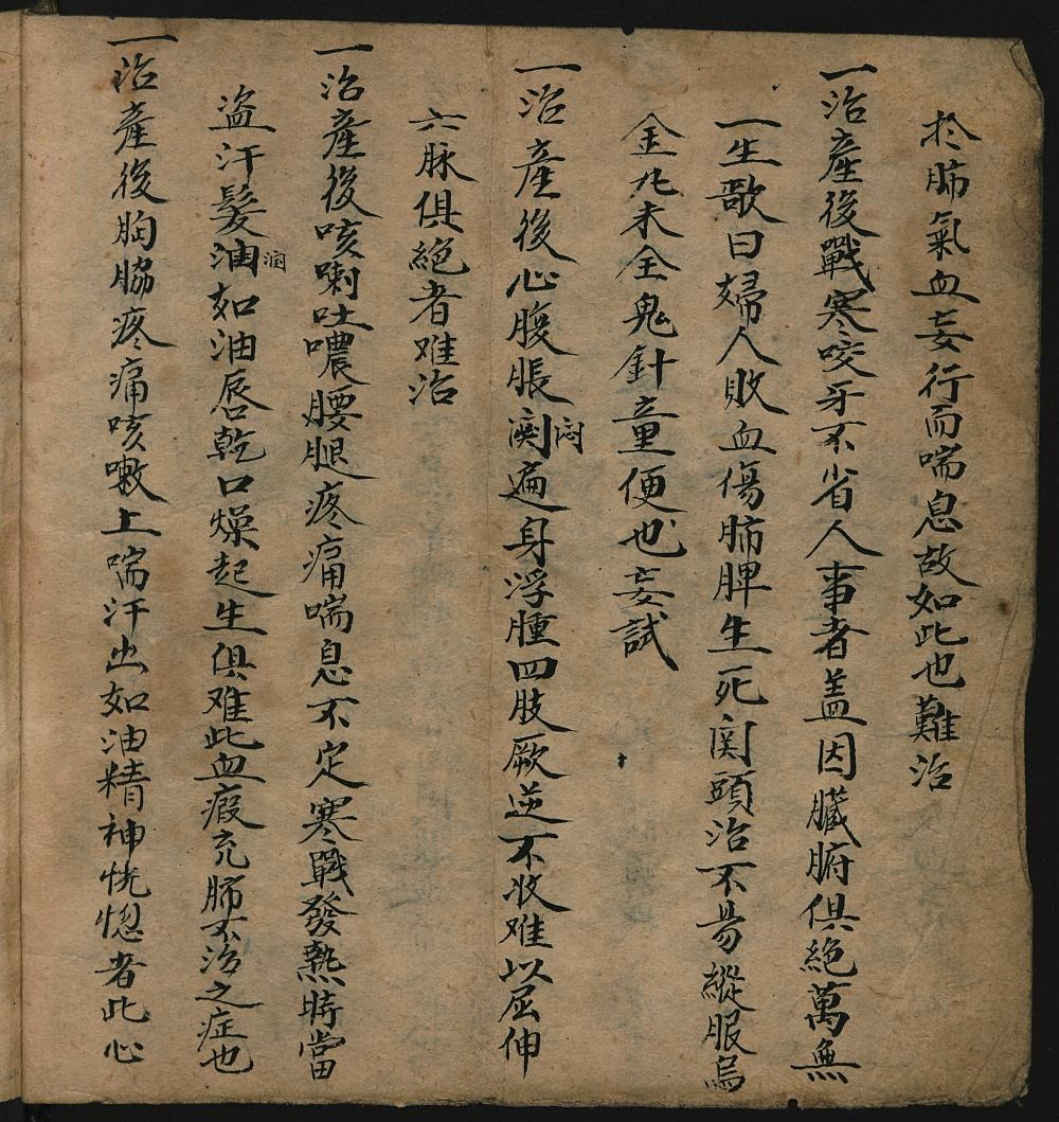 於肺氣血妄行而喘息故如此也難治
一治產後戰寒咬牙不省人事者盖因臓腑俱絶萬無
一生歌曰婦人敗血傷肺脾生死関頭治不易縱服烏
金丸未全鬼針童便也妄試
一治產後心腹脹悶遍身浮腫四肢厥逆不收难以屈伸
六脉俱絶者难治
一治產後咳喇吐噥腰腿疼痛喘息不定寒戰發熱時當
盗汗髮油润如油唇乾口燥起生俱难此血瘕充肺不治之症也
一治產後胸脇疼痛咳嗽上喘汗出如油精神恍惚者此心